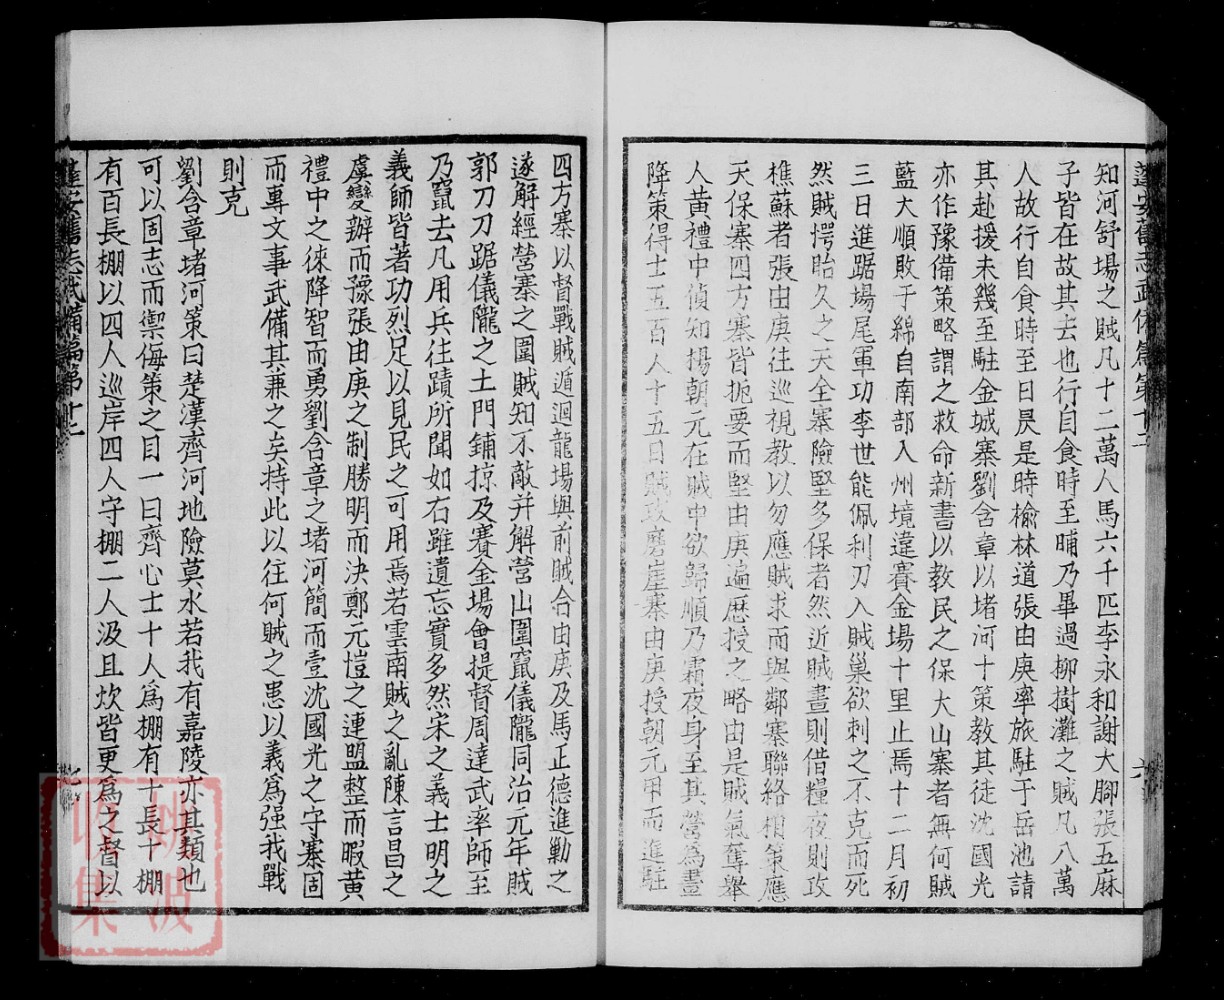 知河舒場之賊凡十二萬人馬六千匹李永和謝大腳張五麻
子皆在故其去也行自食時至晡乃畢過柳樹灘之賊凡八萬
人故行自食時至日昃是時榆林道張由庚率旅駐于岳池請
其赴援未幾至駐金城寨劉含章以堵河十策教其徒沈國光
亦作豫備策略謂之救命新書以教民之保大山寨者無何賊
藍大順敗于綿自南部入州境違賽金場十里止焉十二月初
三日進踞場尾軍功李世能佩利刃入賊巢欲刺之不克而死
然賊愕眙久之天全寨險堅多保者然近賊晝則借糧夜則攻
樵蘇者張由庚往巡視教以勿應賊求而與鄰寨聯絡相策應
天保寨四方寨皆扼要而堅由庚遍歷授之略由是賊氣奪舉
人黃禮中偵知楊朝元在賊中欲歸順乃霜夜身至其營為畫
降策得士五百人十五日賊攻磨崖寨由庚授朝元甲而進駐
四方寨以督戰賊遁迴龍場與前賊合由庚及馬正德進勦之
遂解經營寨之圍賊知不敵并解營山圍竄儀隴同治元年賊
郭刀刀踞儀隴之土門鋪掠及賽金場會提督周達武率師至
乃竄去凡用兵往蹟所聞如右雖遺忘實多然宋之義士明之
義師皆著功烈足以見民之可用焉若雲南賊之亂陳言昌之
虞變辦而豫張由庚之制勝明而決鄭元愷之連盟整而暇黃
禮中之徠降智而勇劉含章之堵河簡而壹沈國光之守寨固
而專文事武備其兼之矣持此以往何賊之患以義爲强我戰
則克
劉含章堵河策曰楚漢齊河地險莫水若我有嘉陵亦其類也
可以固志而禦侮策之目一曰齊心士十人爲棚有十長十棚
有百長棚以四人巡岸四人守棚二人汲且炊皆更爲之督以
蓬安舊志武備篇第十二
七
姚波
收集